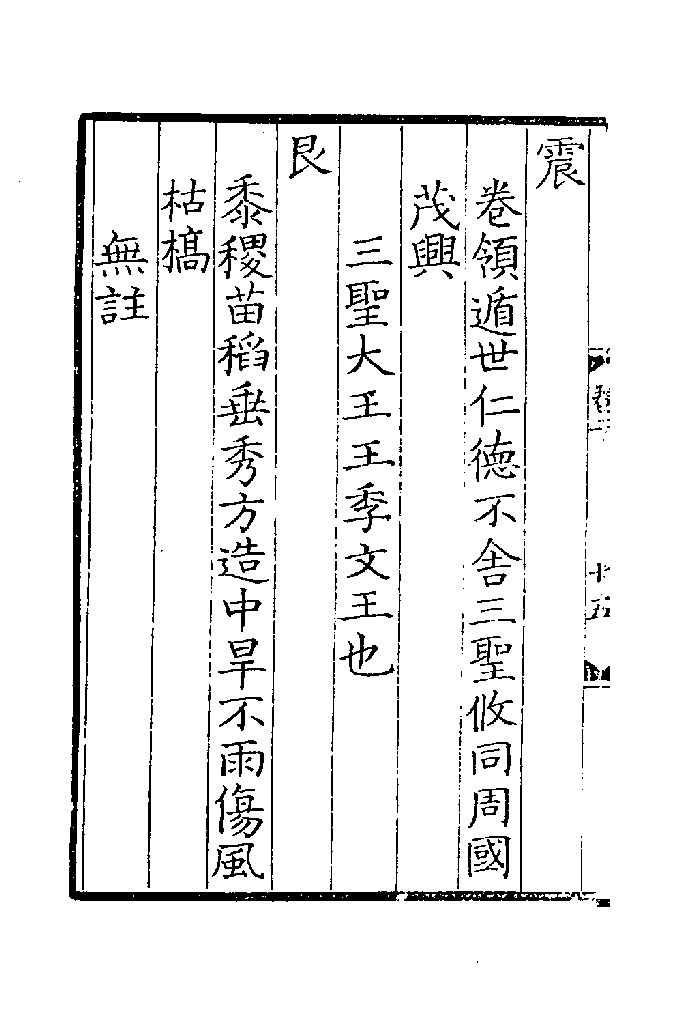 震
卷領遁世仁德不舍三聖攸同周國
茂興
三聖大王王季文王也
艮
黍稷苗稻垂秀方造中旱不雨傷風
枯槁
無註